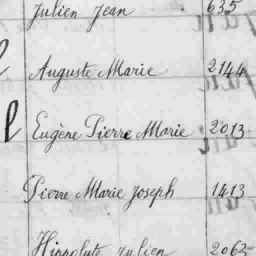 Julien Jean 635
Auguste Marie 2144
Eugène Pierre Marie 2013
Pierre Marie Joseph 1413
Hippolyte Julien 2065